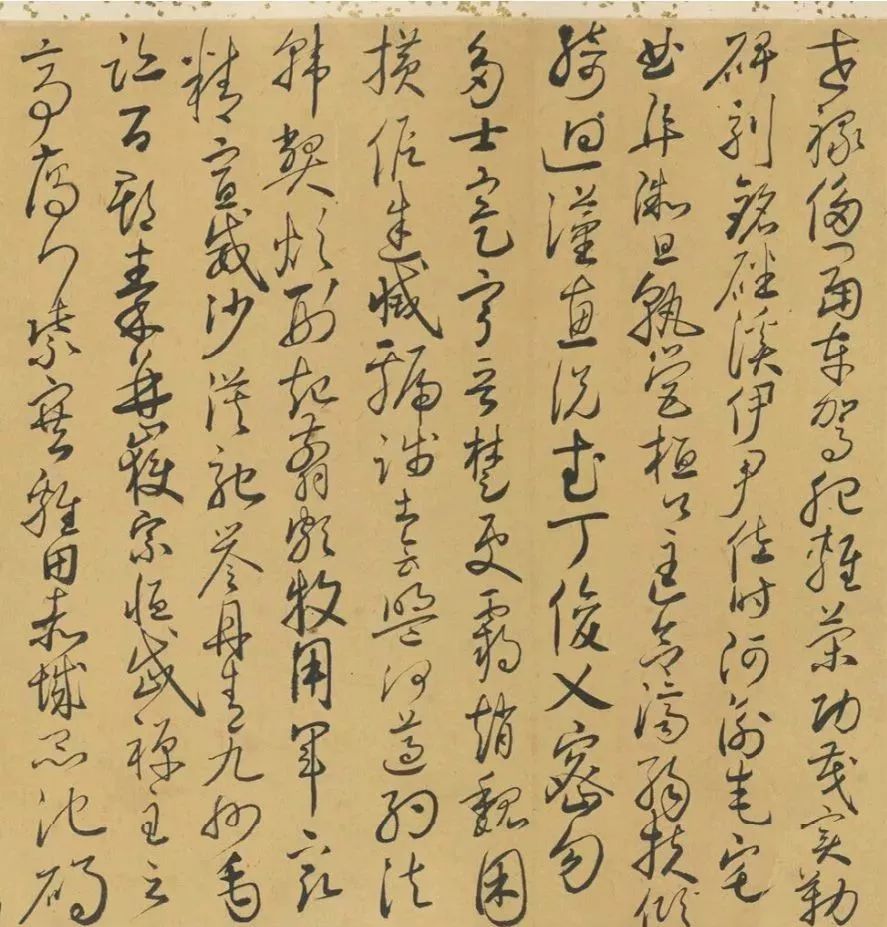 世祿侈富車駕肥輕策功茂實勒
碑刻銘磻溪伊尹佐時阿衡奄宅
曲阜微旦孰營桓公匡合濟弱扶傾
綺迴漢惠說武丁俊乂密勿
多士寔寧晉楚更霸趙魏困
橫假途滅虢踐土會盟何遵約法
韓弊煩刑起翦頗牧用軍最
精宣威沙漠馳譽丹青九州禹
跡百郡秦并嶽宗恒岱禪主云
亭鴈門紫塞雞田赤城昆池碣